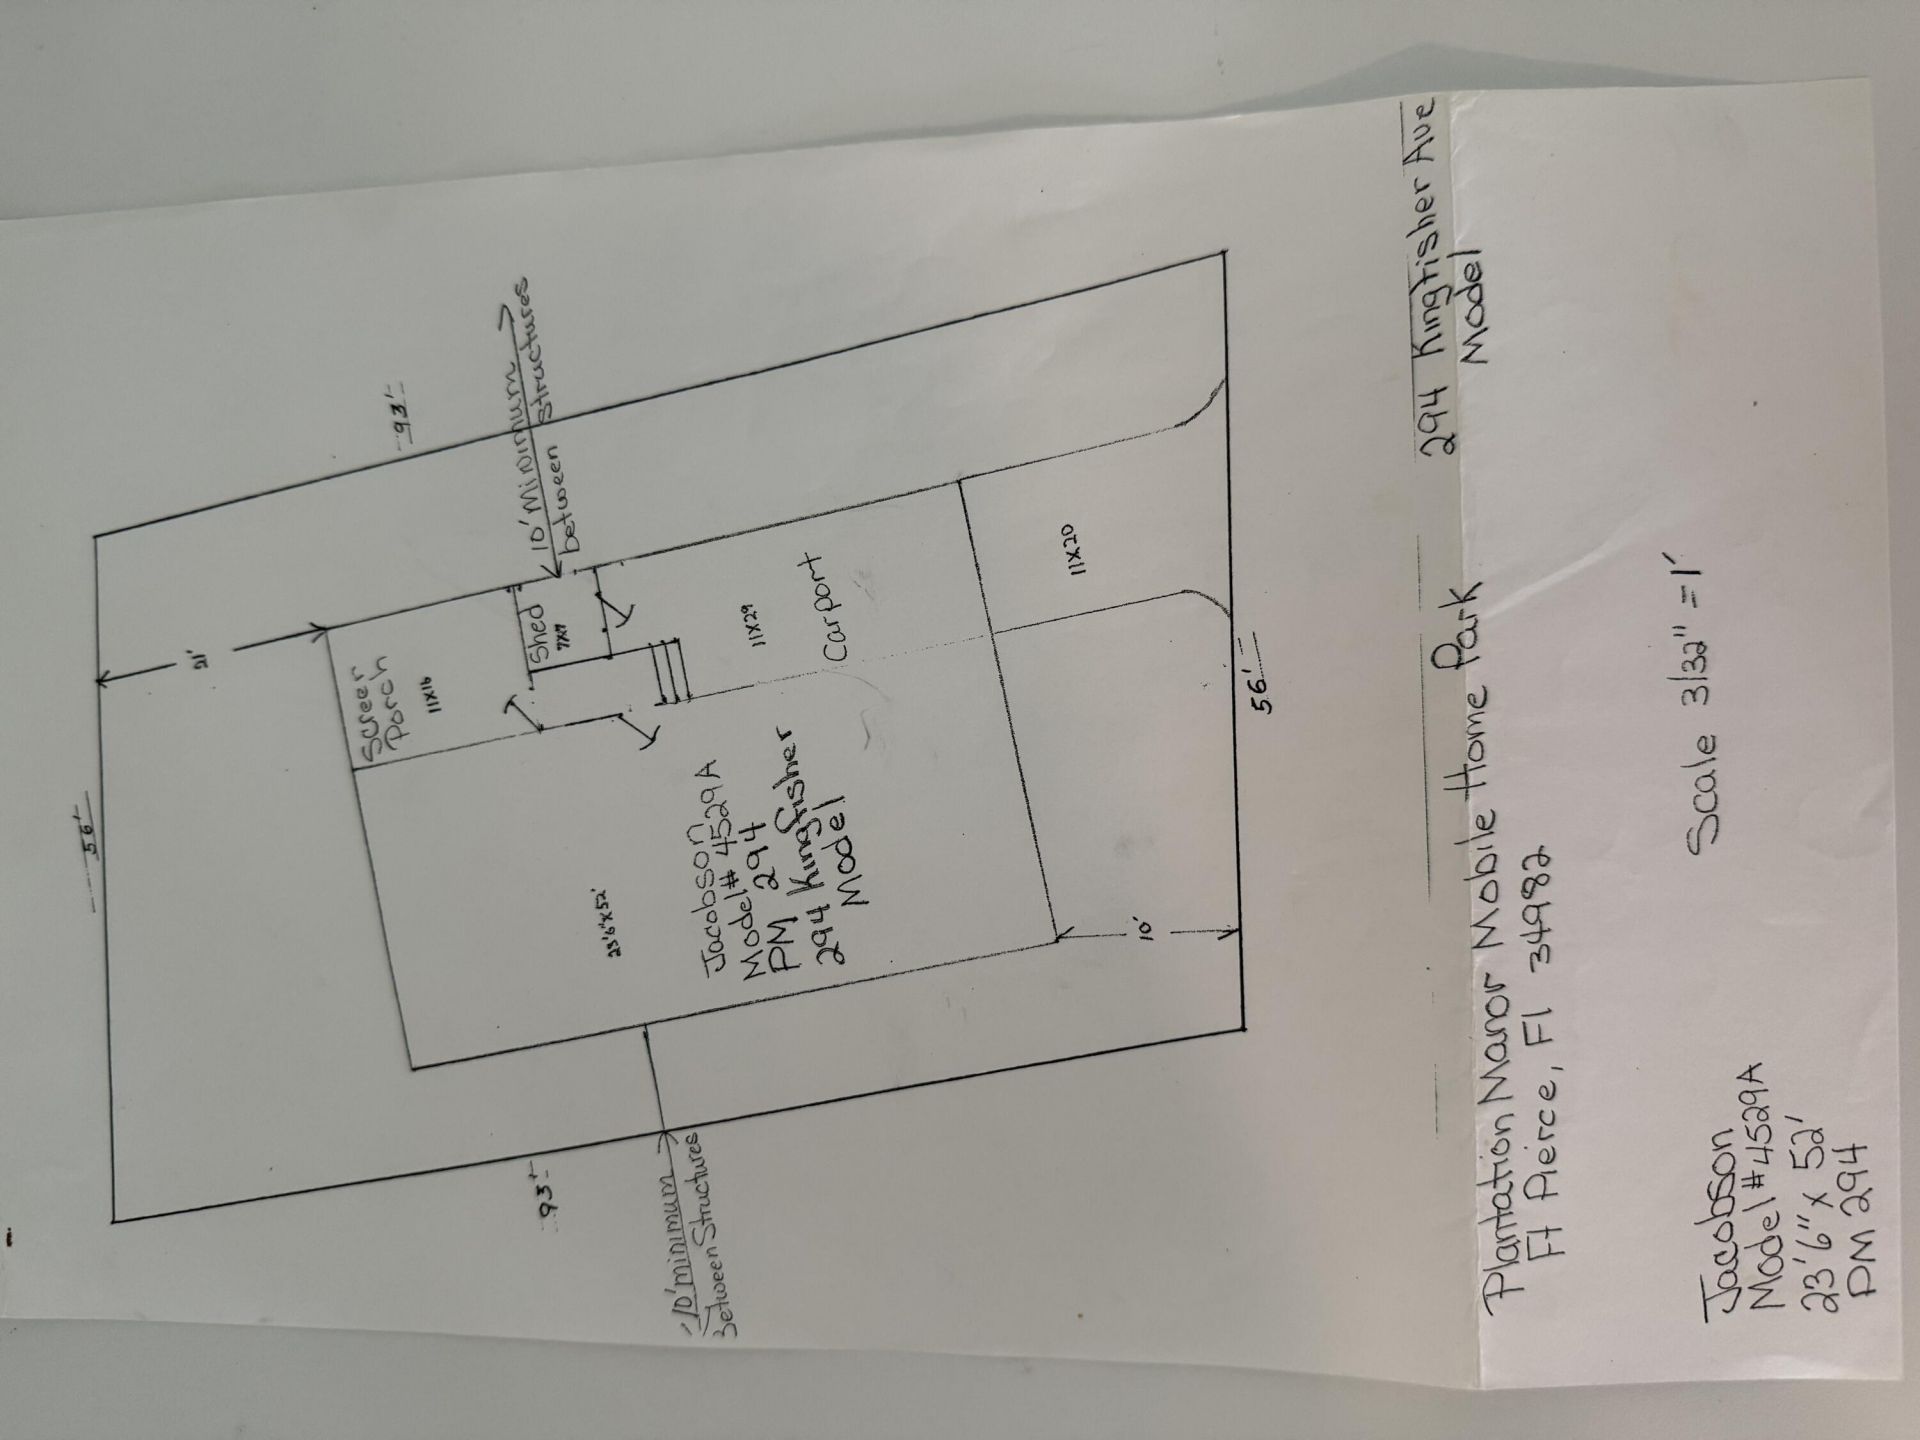 56'
93'
21'
10' Minimum
between structures
Screen
Porch
11X16
Shed
7X7
11X29
Carport
11X20
23'6"X52'
Jacobson
Model# 4529A
PM 294
294 Kingfisher
Model
10'
56'
93'
10' minimum
between Structures
294 Kingfisher Ave
Model
Plantation Manor Mobile Home Park
Ft Pierce, Fl 34982
Scale 3/32" = 1'
Jacobson
Model #4529A
23'6" x 52'
PM 294